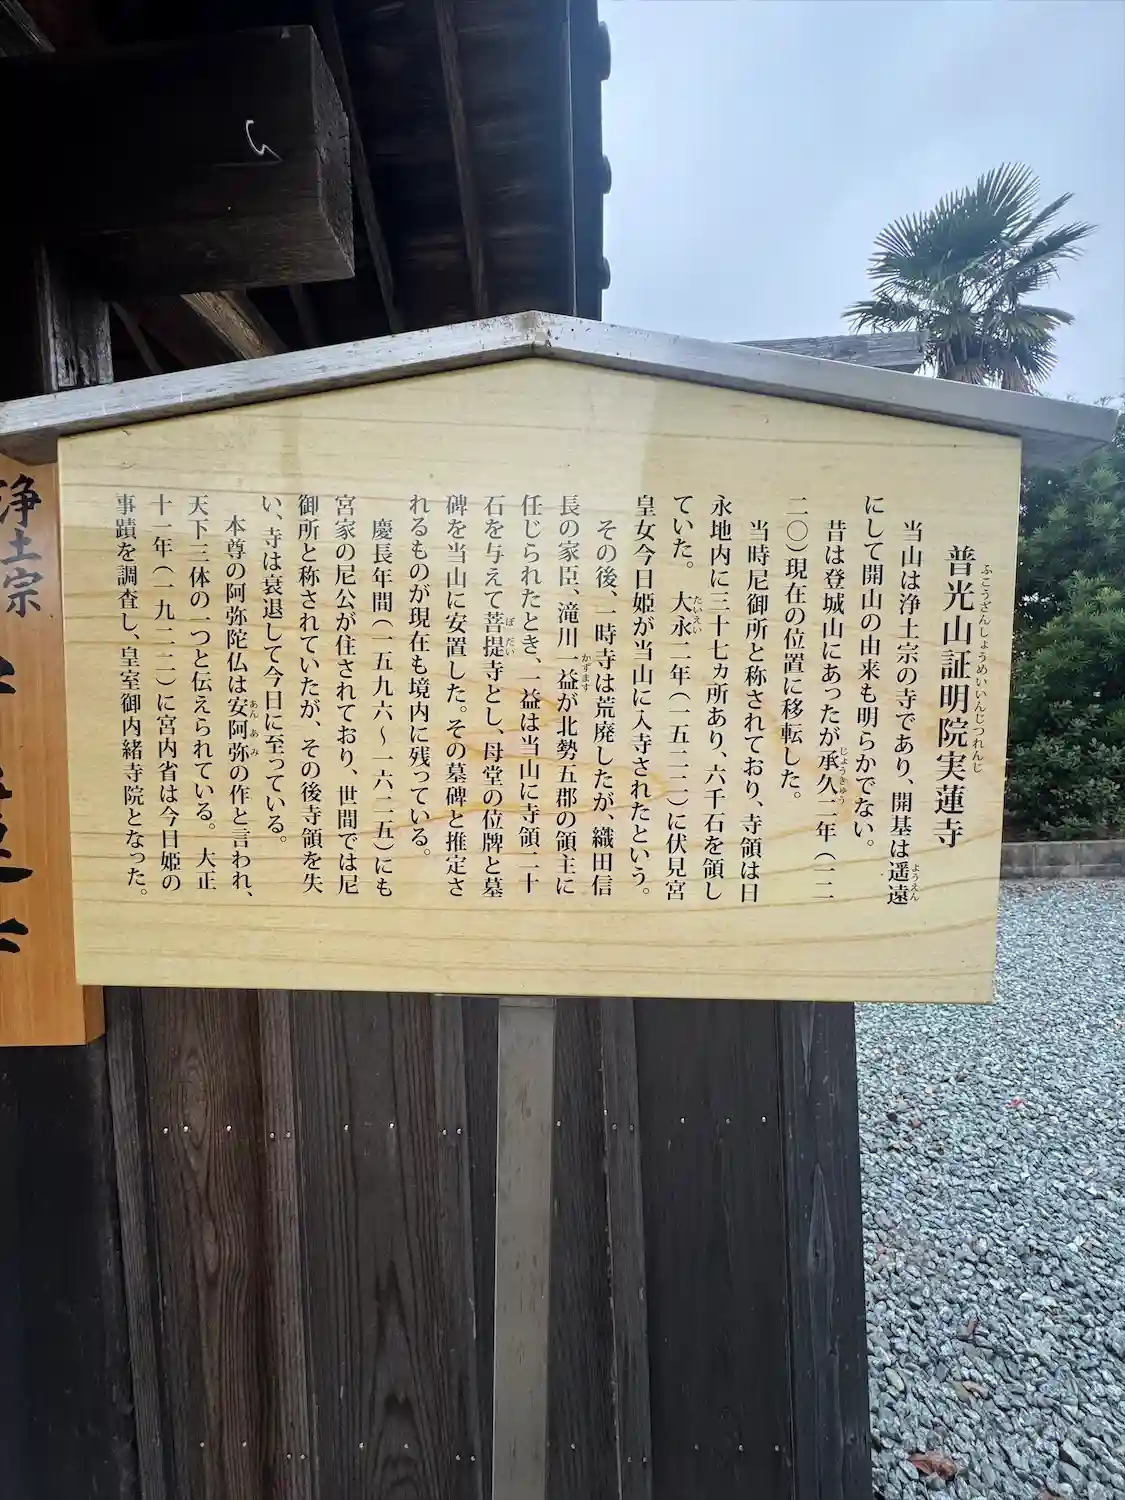 普光山証明院実蓮寺
ふこうざんしょうめいいんじつれんじ
当山は浄土宗の寺であり、開基は遥遠
ようえん
にして開山の由来も明らかでない。
昔は登城山にあったが承久二年（一二
じょうきゅう
二〇）現在の位置に移転した。
当時尼御所と称されており、寺領は日
永地内に三十七ヵ所あり、六千石を領し
ていた。大永二年（一五二二）に伏見宮
たいえい
皇女今日姫が当山に入寺されたという。
その後、一時寺は荒廃したが、織田信
長の家臣、滝川一益が北勢五郡の領主に
かずます
任じられたとき、一益は当山に寺領二十
石を与えて菩提寺とし、母堂の位牌と墓
ぼだい
碑を当山に安置した。その墓碑と推定さ
れるものが現在も境内に残っている。
慶長年間（一五九六～一六二五）にも
宮家の尼公が住されており、世間では尼
御所と称されていたが、その後寺領を失
い、寺は衰退して今日に至っている。
本尊の阿弥陀仏は安阿弥の作と言われ、
あんあみ
天下三体の一つと伝えられている。大正
十一年（一九二二）に宮内省は今日姫の
事蹟を調査し、皇室御内緒寺院となった。
浄土宗